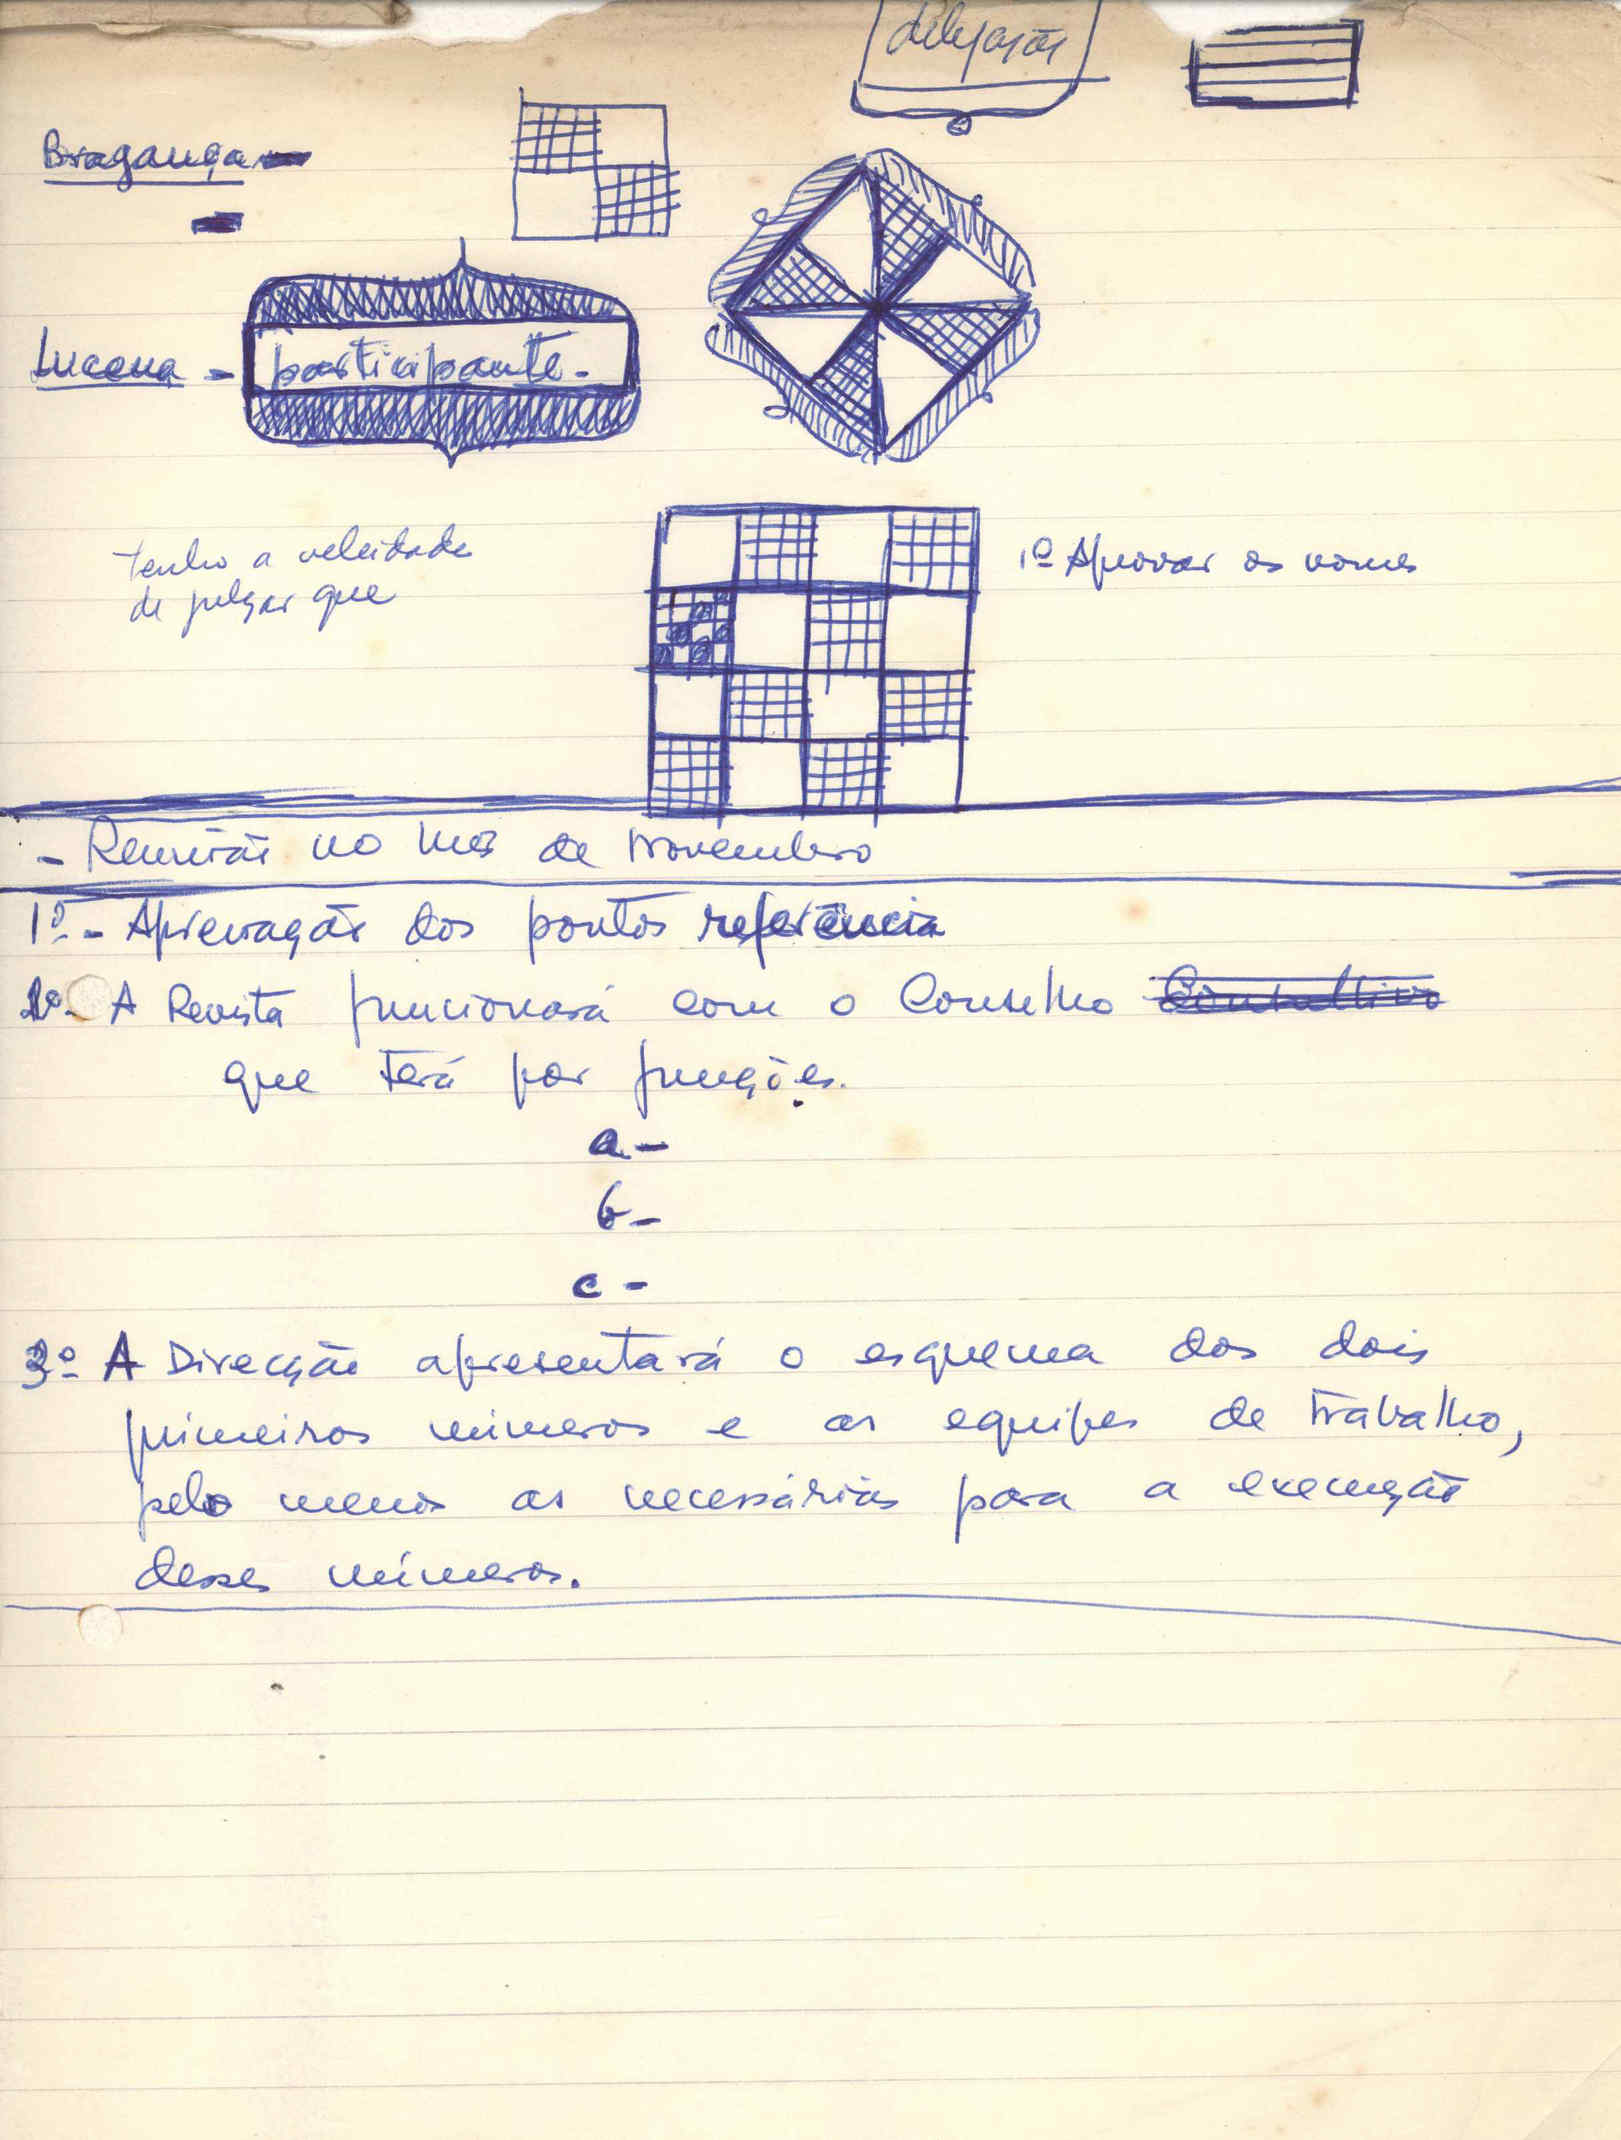 delegação
Bragança
Lucena - participante -
tenho a veleidade
de julgar que
1º Aprovar os nomes
- Reunião no mês de Novembro
1º - Aprovação dos pontos referência
2º - A Revista funcionará com o Conselho Consultivo
que terá por funções.
a -
b -
c -
3º A Direcção apresentará o esquema dos dois
primeiros números e as equipes de trabalho,
pelo menos as necessárias para a execução
desses números.